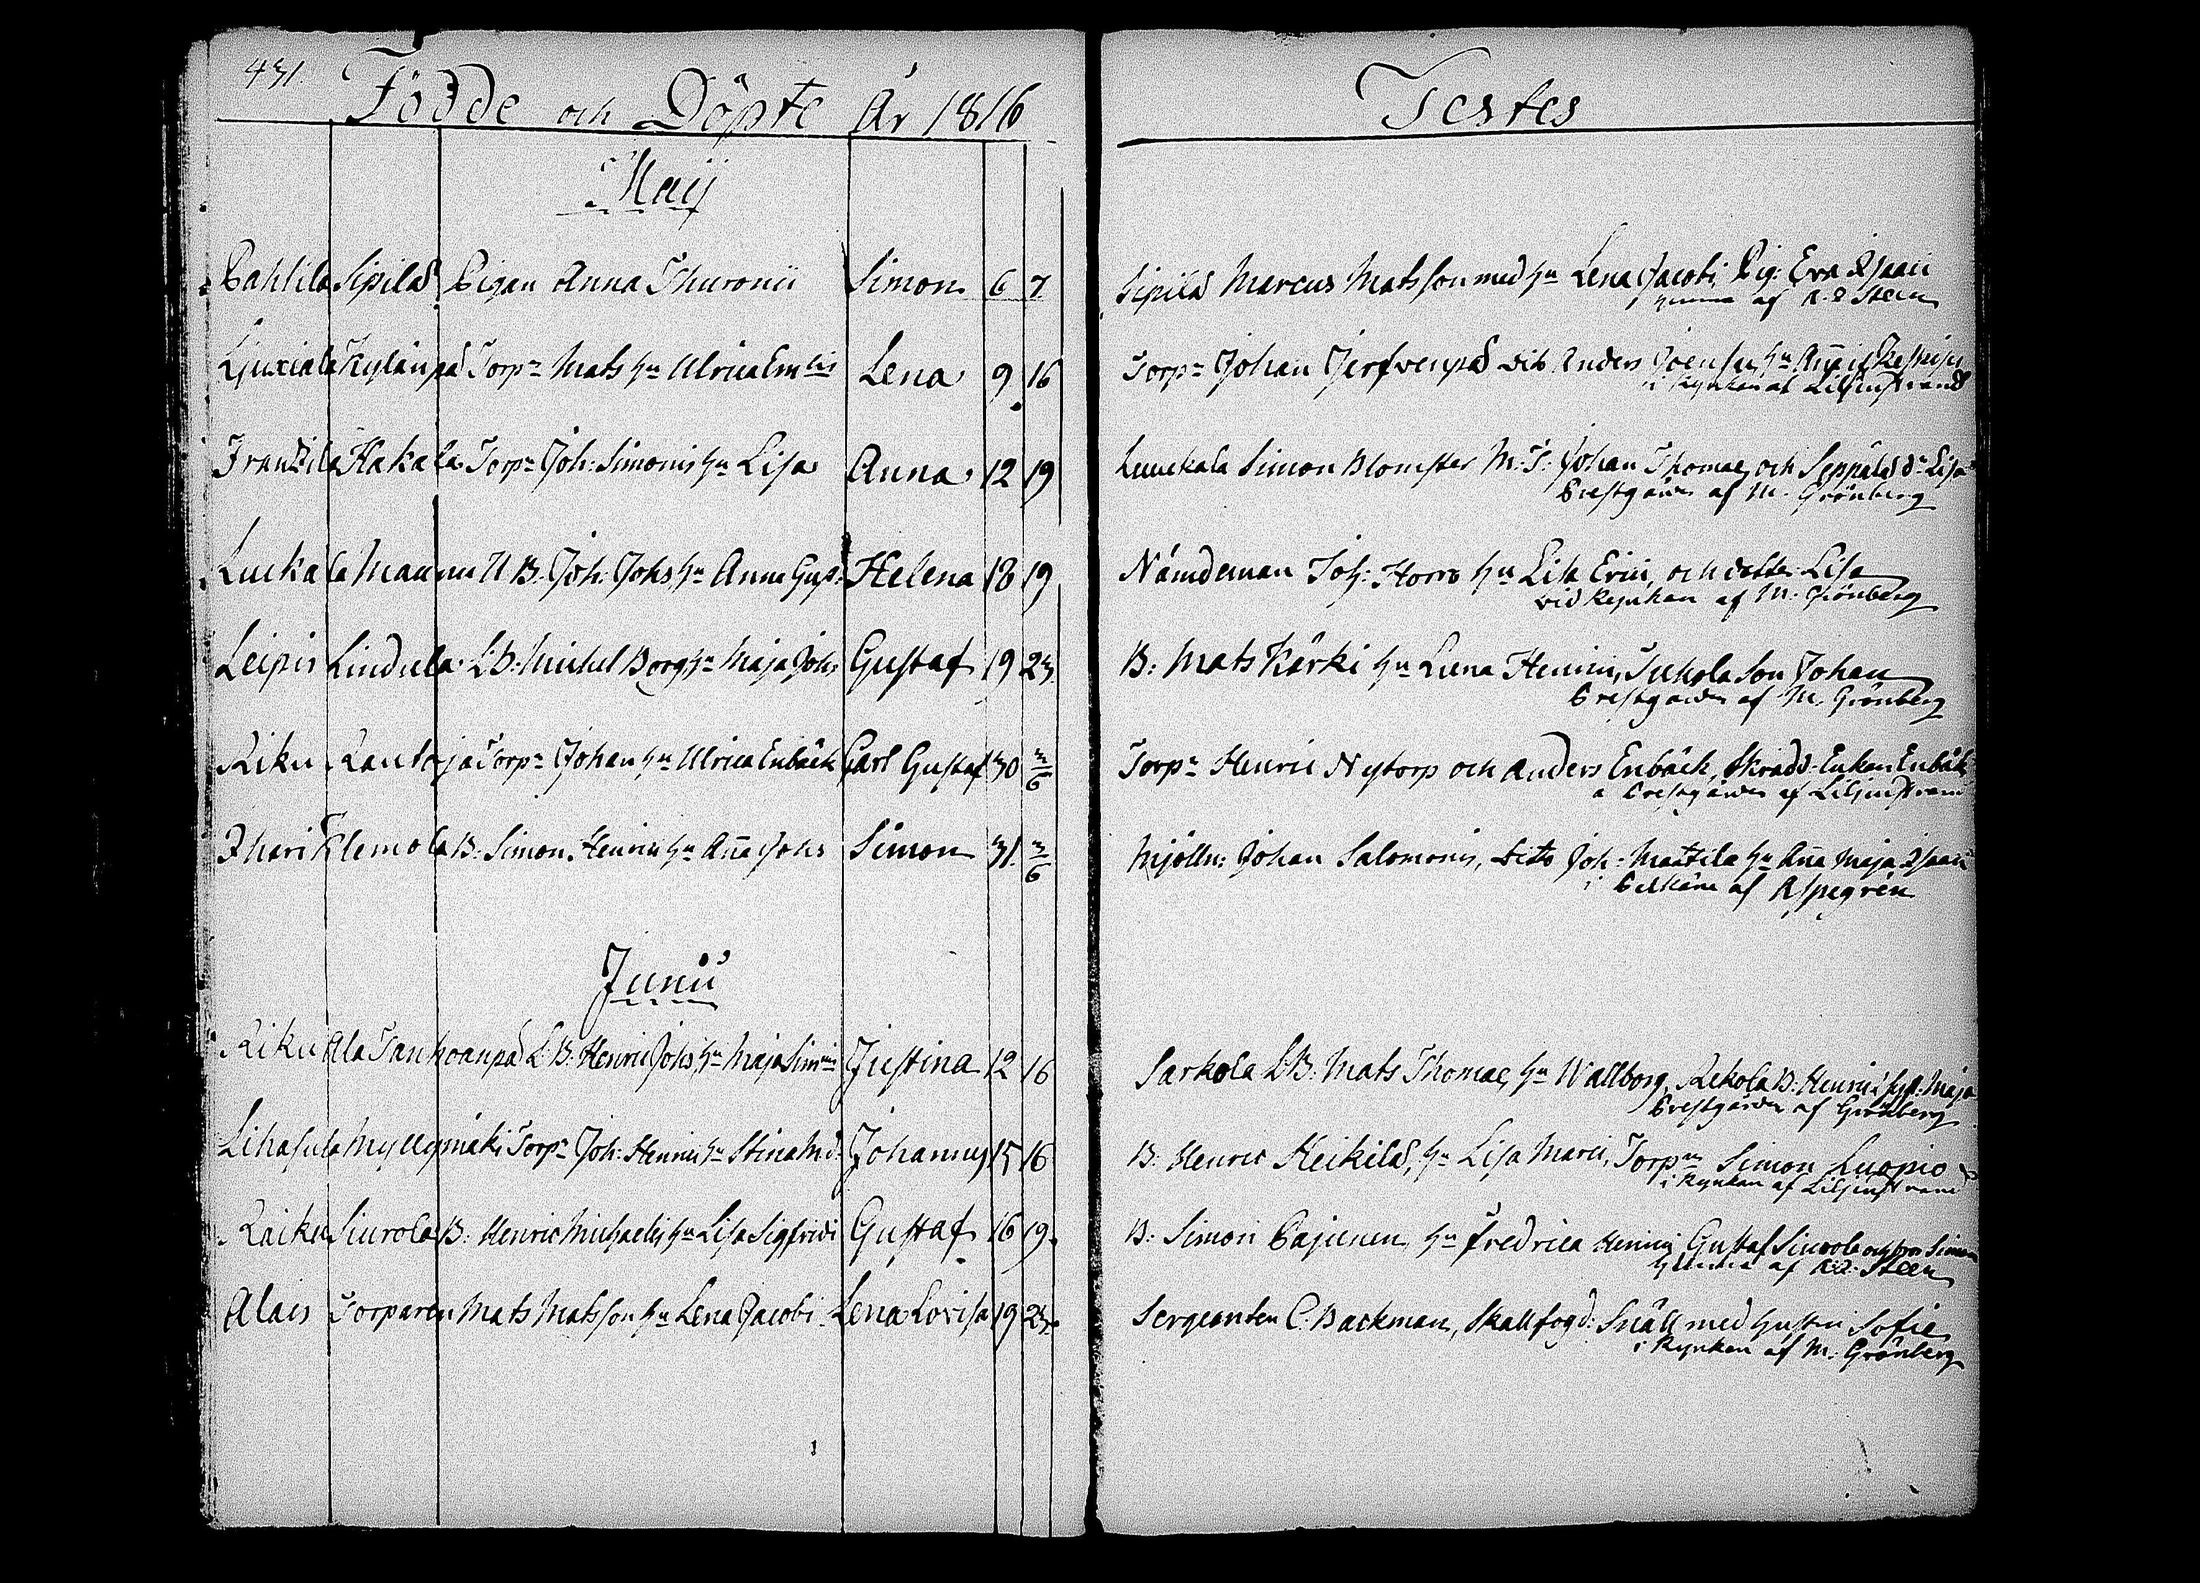 431.
Födde och Döpte År 1816
Maij
Pahlila Sipilä Pigan Anna Thuronii Simon 6 7
Ljuxiala Kylänpä Torpn Mats hu Ulrica Em Lena 9 16
Frantzila Hakala Torpn Joh: Simonis hu Lisa Anna 12 19
Luckala Mannu U B. Joh: Johs hu Anna Gust Helena 18 19
Leipis Lindula LB: Michel Borg hu Maja Johs Gustaf 19 23.
Riku Rautoja Torpn Johan hu Ulrica Enbäck Carl Gustaf 30 3/6
Ihari Klemola B: Simon Henrici hu Aña Johs Simon 31. 3/6
Junii
Riku Ala Tanhoanpä L B: Henric Johs, hu Maja Simonis Justina 12 16
Lihasula Myllymäki Torpn Joh: Henrici hu Stina Md: Johannes 15 16
Raiku Siurola B: Henric Michaelis hu Lisa Sigfridi Gustaf 16 19.
Alais Torparen Mats Matsson hu Lena Jacobi Lena Lovisa 19 23.
Testes
Sipilä Marcus Matsson med hu Lena Jacobi, Pig: Eva Isaaci
hemma af A. I Steen
Torpn Johan Jerfvenpä dito Anders Joensu, hu Aña
i Kyrkan af Liljenstrand
Luuckala Simon Blomster M: T: Johan Thomae, och Seppälä dr Lisa
Prestgården af M. Grönberg
Nämdeman Joh: Horro hu Lisa Erici, och dotter Lisa
vid Kyrkan af M: Grönberg
B: Mats Kärki hu Lena Henrici, Jukola Son Johan
Prestgården af M. Grönberg
Torpn Henric Nytorp och Anders Enbäck, Skradd: Enkan Enbäk
a Prestgården af Liljenstrand
Mjölln: Johan Salomonis, dito Joh: Mattila hu Aña Maja Isaaci
i Pelkäne af Aspegrén
Sarkola LB: Mats Thomae, hu Wallborg, Rekola B: Henrics hust: Maja
Prestgården af Grönberg
B: Henric Heikilä, hu Lisa Marci, Torpn Simon Luopio
i Kyrkan af Liljenstrand
B: Simon Pajunen, hu Fredrica Henrici Gustaf Siurola och bror Simon
hemma af A:I: Steen
Sergeanten C. Backman, Skallfogd: Snäll med hustru Sofie
i Kyrkan af M: Grönberg